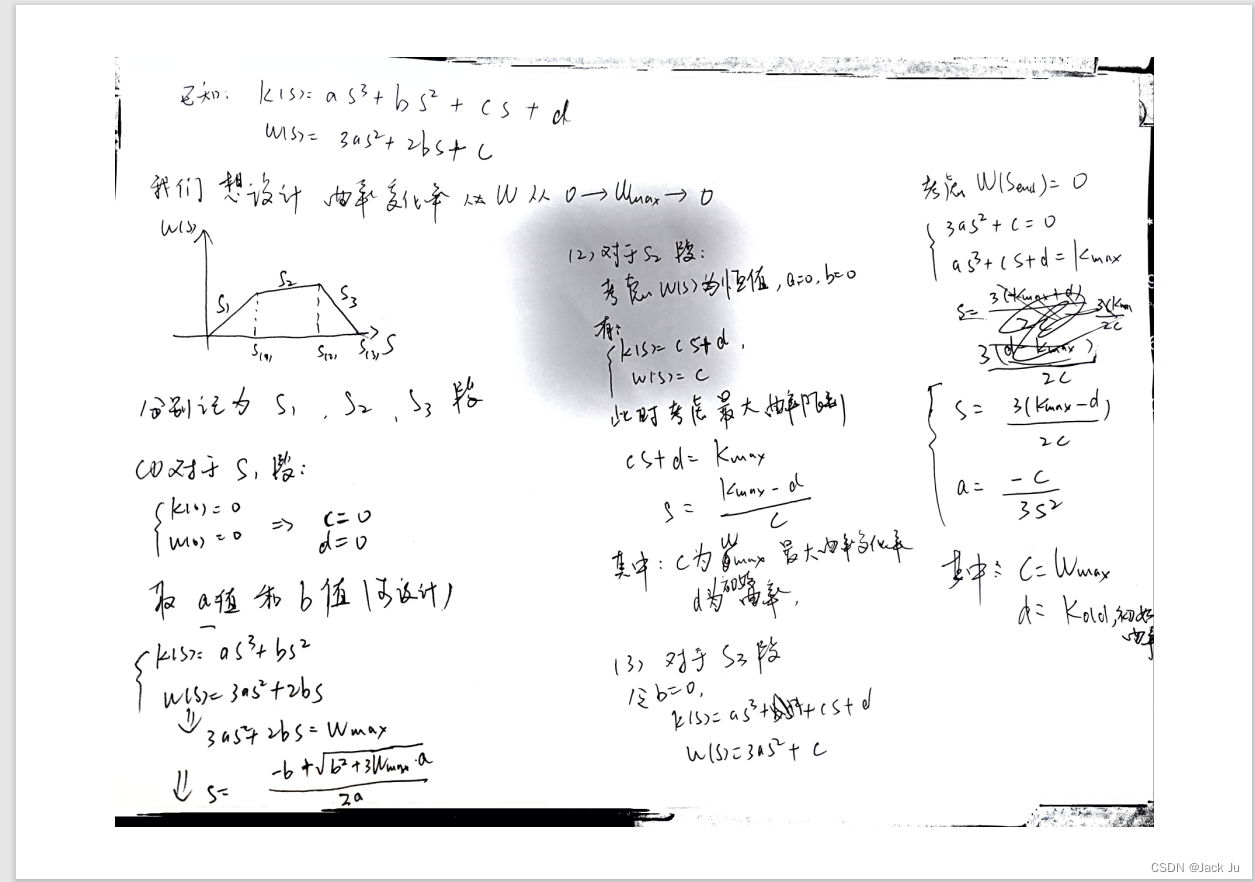 已知: k(s)= as³+bs²+cs+d
w(s)= 3as²+2bs+c
我们想设计 曲率变化率 从 W 从 0→Wmax→0
W(s)
S₁
S₂
S₃
S(1) S(2) S(3) S
分别记为 S₁、S₂、S₃ 段
(1) 对于 S₁ 段:
k(0)=0
w(0)=0 => c=0
d=0
取 a值 和 b值 (可设计)
k(s)= as³+bs²
w(s)= 3as²+2bs
⇓ 3as²+2bs=Wmax
⇓ s= (-b+√(b²+3Wmax·a))/3a
(2) 对于 S₂ 段:
考虑 W(s)为恒值, a=0, b=0
有:
k(s)= cs+d,
w(s)= c
此时考虑最大曲率限制
cs+d= kmax
s= (kmax-d)/c
其中: c为Wmax 最大曲率变化率
d为初始曲率,
(3) 对于 S₃ 段
b=0,
k(s)=as³+cs+d
w(s)=3as²+c
考虑 W(Send)=0
3as²+c=0
as³+cs+d=kmax
s=
2c
s= 3(kmax-d)/2c
a= -c/3s²
其中: c=Wmax
d= kold, 初始
曲率
CSDN @Jack Ju